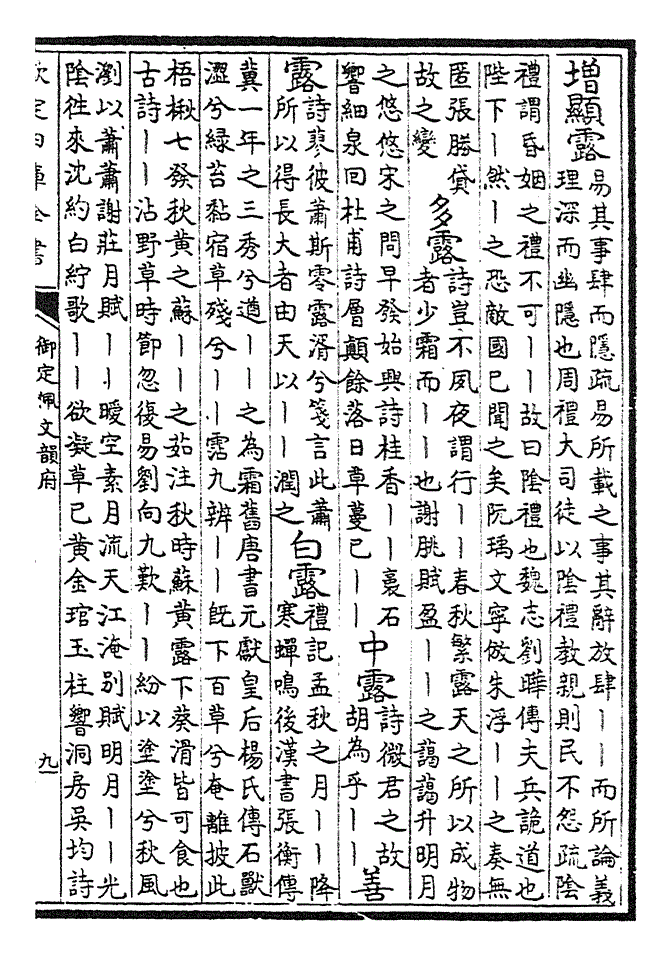 增顯露
易其事肆而隱疏易所載之事其辭放肆丨丨而所論義
理深而幽隱也周禮大司徒以陰禮教親則民不怨疏陰
禮謂昏姻之禮不可丨丨故曰陰禮也魏志劉曄傳夫兵詭道也
陛下丨然丨之恐敵國已聞之矣阮瑀文寧倣朱浮丨丨之奏無
匿張勝貸
故之變
多露
詩豈不夙夜謂行丨丨春秋繁露天之所以成物
者少霜而丨丨也謝朓賦盈丨丨之藹藹升明月
之悠悠宋之問早發始興詩桂香丨丨裛石
響細泉回杜甫詩層顛餘落日草蔓已丨丨
中露
詩微君之故
胡為乎丨丨
善
露
詩蓼彼蕭斯零露湑兮箋言此蕭
所以得長大者由天以丨丨潤之
白露
禮記孟秋之月丨丨降
寒蟬鳴後漢書張衡傳
冀一年之三秀兮遒丨丨之為霜舊唐書元獻皇后楊氏傳石獸
澀兮綠苔黏宿草殘兮丨丨霑九辨丨丨既下百草兮奄離披此
梧楸七發秋黄之蘇丨丨之茹注秋時蘇黄露下葵滑皆可食也
古詩丨丨沾野草時節忽復易劉向九歎丨丨紛以塗塗兮秋風
瀏以蕭蕭謝莊月賦丨丨曖空素月流天江淹别賦明月丨丨光
陰徃來沈約白紵歌丨丨欲凝草已黄金琯玉柱響洞房吳均詩
欽定四庫全書
御定佩文韻府
九